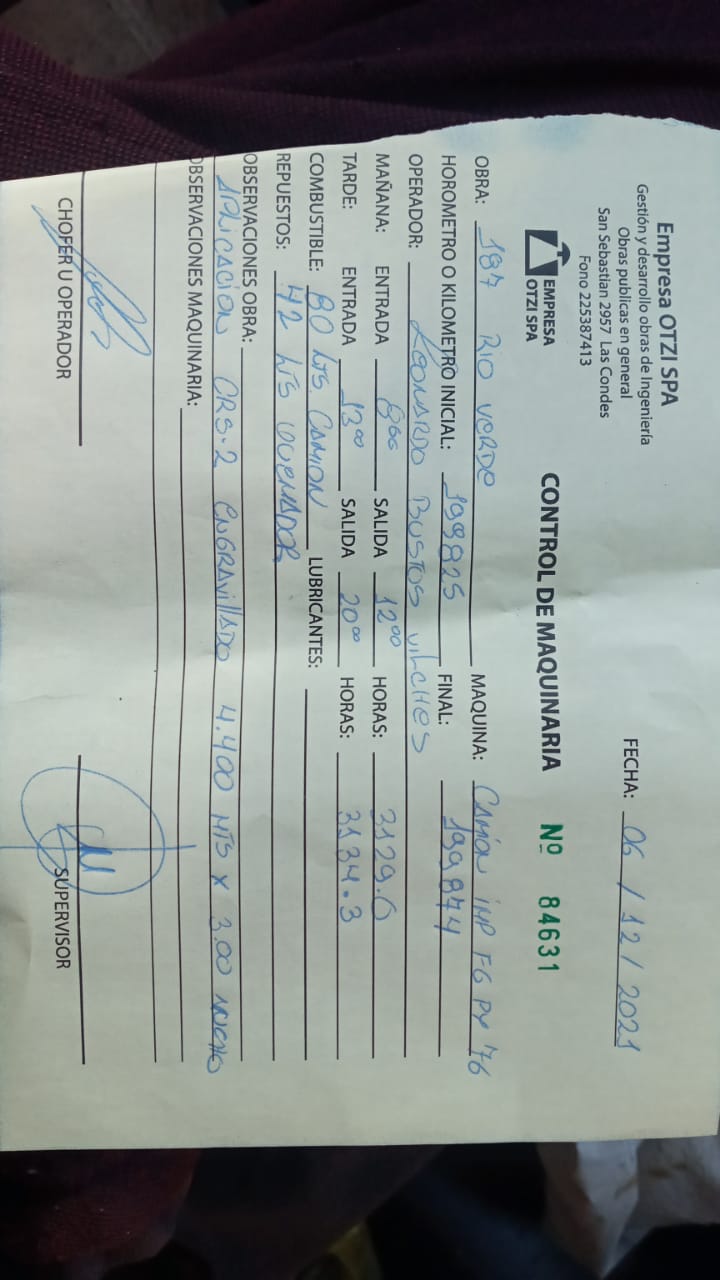 Empresa OTZI SPA
Gestión y desarrollo obras de Ingeniería
Obras publicas en general
San Sebastian 2957 Las Condes
Fono 225387413
EMPRESA
OTZI SPA
FECHA: 06 / 12 / 2021
CONTROL DE MAQUINARIA Nº 84631
OBRA: 187 RIO VERDE MAQUINA: CAMIÓN IMP FG PY 76
HOROMETRO O KILOMETRO INICIAL: 199825 FINAL: 199874
OPERADOR: LEONARDO BUSTOS VILCHES
MAÑANA: ENTRADA 8⁰⁰ SALIDA 12⁰⁰ HORAS: 3129.0
TARDE: ENTRADA 13⁰⁰ SALIDA 20⁰⁰ HORAS: 3134.3
COMBUSTIBLE: 80 LTS. CAMION LUBRICANTES:
REPUESTOS: 42 LTS QUEMADOR
OBSERVACIONES OBRA:
APLICACION CRS-2 ENGRAVILLADO 4.400 MTS x 3.00 ANCHO
OBSERVACIONES MAQUINARIA:
CHOFER U OPERADOR
SUPERVISOR